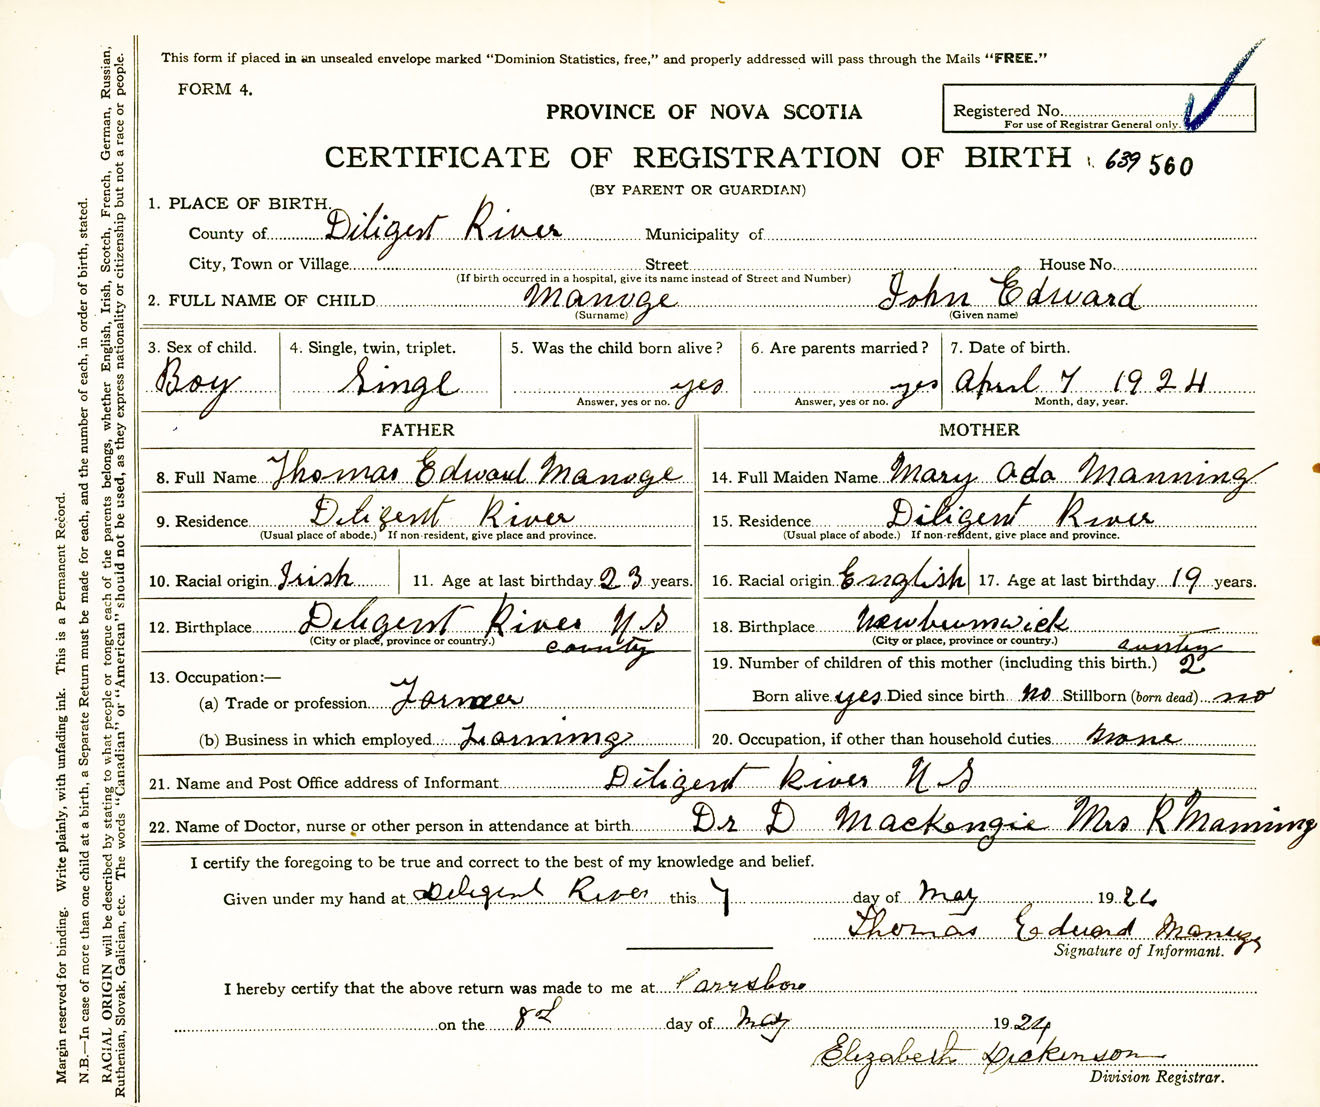 This form if placed in an unsealed envelope marked "Dominion Statistics, free," and properly addressed will pass through the Mails "FREE."
FORM 4.
Registered No.
For use of Registrar General only.
PROVINCE OF NOVA SCOTIA
CERTIFICATE OF REGISTRATION OF BIRTH 639 560
(BY PARENT OR GUARDIAN)
1. PLACE OF BIRTH.
County of Diligent River Municipality of
City, Town or Village Street House No.
(If birth occurred in a hospital, give its name instead of Street and Number)
2. FULL NAME OF CHILD Manvge John Edward
(Surname) (Given name)
3. Sex of child. 4. Single, twin, triplet. 5. Was the child born alive? 6. Are parents married? 7. Date of birth.
Boy Singl yes yes April 7 1924
Answer, yes or no. Answer, yes or no. Month, day, year.
FATHER MOTHER
8. Full Name Thomas Edward Manvge 14. Full Maiden Name Mary Ada Manning
9. Residence Diligent River 15. Residence Diligent River
(Usual place of abode.) If non-resident, give place and province. (Usual place of abode.) If non-resident, give place and province.
10. Racial origin Irish 11. Age at last birthday 23 years. 16. Racial origin English 17. Age at last birthday 19 years.
12. Birthplace Diligent River N S 18. Birthplace Newbrunswick
(City or place, province or country.) county (City or place, province or country.)
13. Occupation:— 19. Number of children of this mother (including this birth.) 2
(a) Trade or profession Farmer Born alive yes Died since birth no Stillborn (born dead) no
(b) Business in which employed Farming 20. Occupation, if other than household duties none
21. Name and Post Office address of Informant Diligent River N S
22. Name of Doctor, nurse or other person in attendance at birth Dr D Mackengie Mrs R Manning
I certify the foregoing to be true and correct to the best of my knowledge and belief.
Given under my hand at Diligent River this 7 day of May 1924
Thomas Edward Manvge
Signature of Informant.
I hereby certify that the above return was made to me at Parrsboro
on the 8th day of May 1924
Elizabeth Dickinson
Division Registrar.
Margin reserved for binding. Write plainly, with unfading ink. This is a Permanent Record.
N.B.—In case of more than one child at a birth, a Separate Return must be made for each, and the number of each, in order of birth, stated.
RACIAL ORIGIN will be described by stating to what people or tongue each of the parents belongs, whether English, Irish, Scotch, French, German, Russian,
Ruthenian, Slovak, Galician, etc. The words "Canadian" or "American" should not be used, as they express nationality or citizenship but not a race or people.